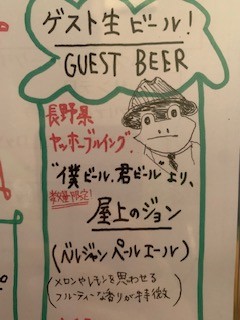 ゲスト生ビール!
GUEST BEER
長野県
ヤッホーブルイング.
"僕ビール.君ビール"より、
数量限定!
屋上のジョン
(ベルジャンペールエール)
(メロンやレモンを思わせる
フルーティーな香りが特徴)